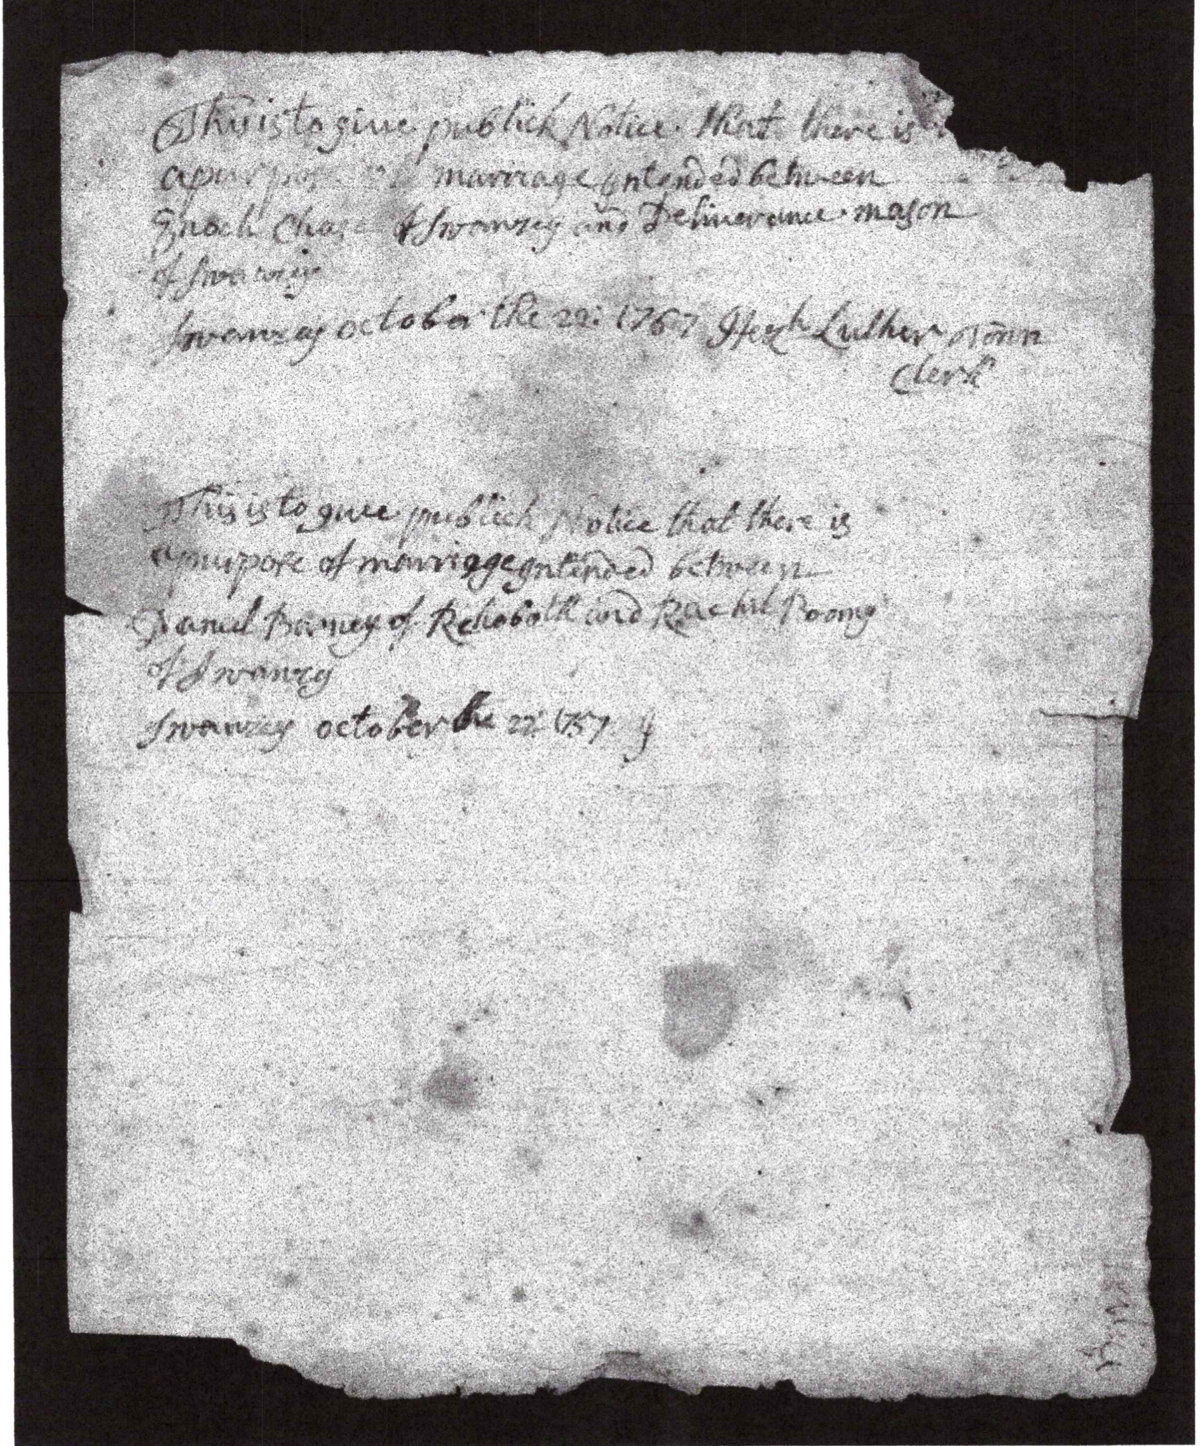 This is to give publick Notice that there is
a purpose of marriage Intended between
Enoch Chase of Swanzey and Deliverance mason
of Swanzey
Swanzey october the 22: 1757 Luther Town
Clerk
This is to give publick Notice that there is
a purpose of marriage Intended between
Daniel Barney of Rehoboth and Rachel
of Swanzy
Swanzey october the 22: 1757